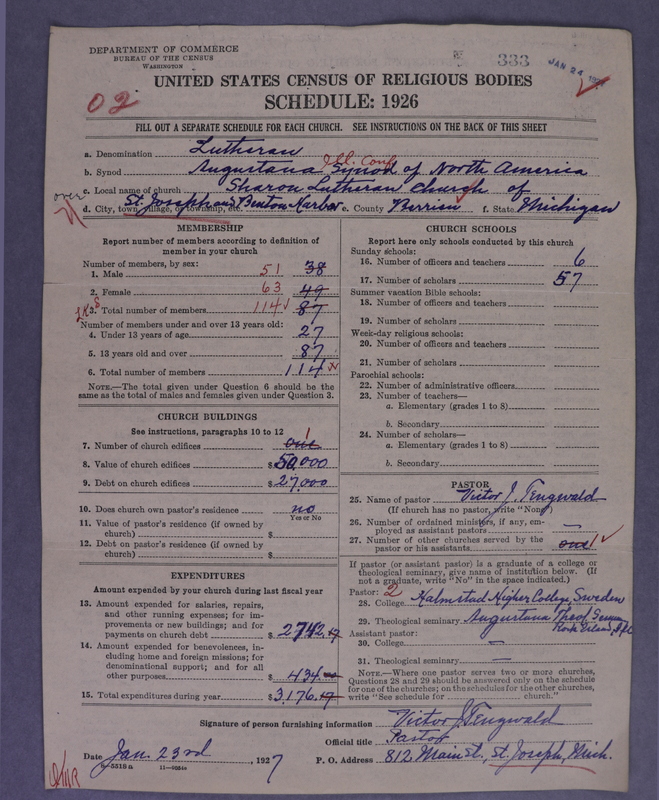 DEPARTMENT OF COMMERCE
BUREAU OF THE CENSUS
WASHINGTON
333
JAN 24 192
02
UNITED STATES CENSUS OF RELIGIOUS BODIES
SCHEDULE: 1926
FILL OUT A SEPARATE SCHEDULE FOR EACH CHURCH. SEE INSTRUCTIONS ON THE BACK OF THIS SHEET
a. Denomination Lutheran
Ill. Conf.
b. Synod Augustana Synod of North America
c. Local name of church Sharon Lutheran Church of
over
d. City, town, village, or township, etc. St. Joseph and Benton Harbor e. County Berrien f. State Michigan
MEMBERSHIP
Report number of members according to definition of
member in your church
Number of members, by sex:
1. Male 51 38
2. Female 63 49
3. Total number of members 114 87
Number of members under and over 13 years old:
4. Under 13 years of age 27
5. 13 years old and over 87
6. Total number of members 114
NOTE.—The total given under Question 6 should be
same as the total of males and females given under Question 3.
CHURCH BUILDINGS
See instructions, paragraphs 10 to 12
7. Number of church edifices one 1
8. Value of church edifices $ 50,000
9. Debt on church edifices $ 27,000
10. Does church own pastor's residence no
Yes or No
11. Value of pastor's residence (if owned by
church) $
12. Debt on pastor's residence (if owned by
church) $
EXPENDITURES
Amount expended by your church during last fiscal year
13. Amount expended for salaries, repairs,
and other running expenses; for im-
provements or new buildings; and for
payments on church debt $ 2742.19
14. Amount expended for benevolences, in-
cluding home and foreign missions; for
denominational support; and for all
other purposes $ 434.00
15. Total expenditures during year $ 3,176.19
CHURCH SCHOOLS
Report here only schools conducted by this church
Sunday schools:
16. Number of officers and teachers 6
17. Number of scholars 57
Summer vacation Bible schools:
18. Number of officers and teachers
19. Number of scholars
Week-day religious schools:
20. Number of officers and teachers
21. Number of scholars
Parochial schools:
22. Number of administrative officers
23. Number of teachers—
a. Elementary (grades 1 to 8)
b. Secondary
24. Number of scholars—
a. Elementary (grades 1 to 8)
b. Secondary
PASTOR
25. Name of pastor Victor J. Tengwald
(If church has no pastor, write "None")
26. Number of ordained ministers, if any, em-
ployed as assistant pastors —
27. Number of other churches served by the
pastor or his assistants one 1
If pastor (or assistant pastor) is a graduate of a college or
theological seminary, give name of institution below. (If
not a graduate, write "No" in the space indicated.)
Pastor: 2
28. College Halmstad Higher College, Sweden
29. Theological seminary Augustana Theol. Semin.
Rock Island, Ill.
Assistant pastor:
30. College —
31. Theological seminary —
NOTE.—Where one pastor serves two or more churches,
Questions 28 and 29 should be answered only on the schedule
for one of the churches; on the schedules for the other churches,
write "See schedule for church."
Signature of person furnishing information Victor J. Tengwald
Official title Pastor
Date Jan. 23rd, 1927
P. O. Address 812 Main St., St. Joseph, Mich.